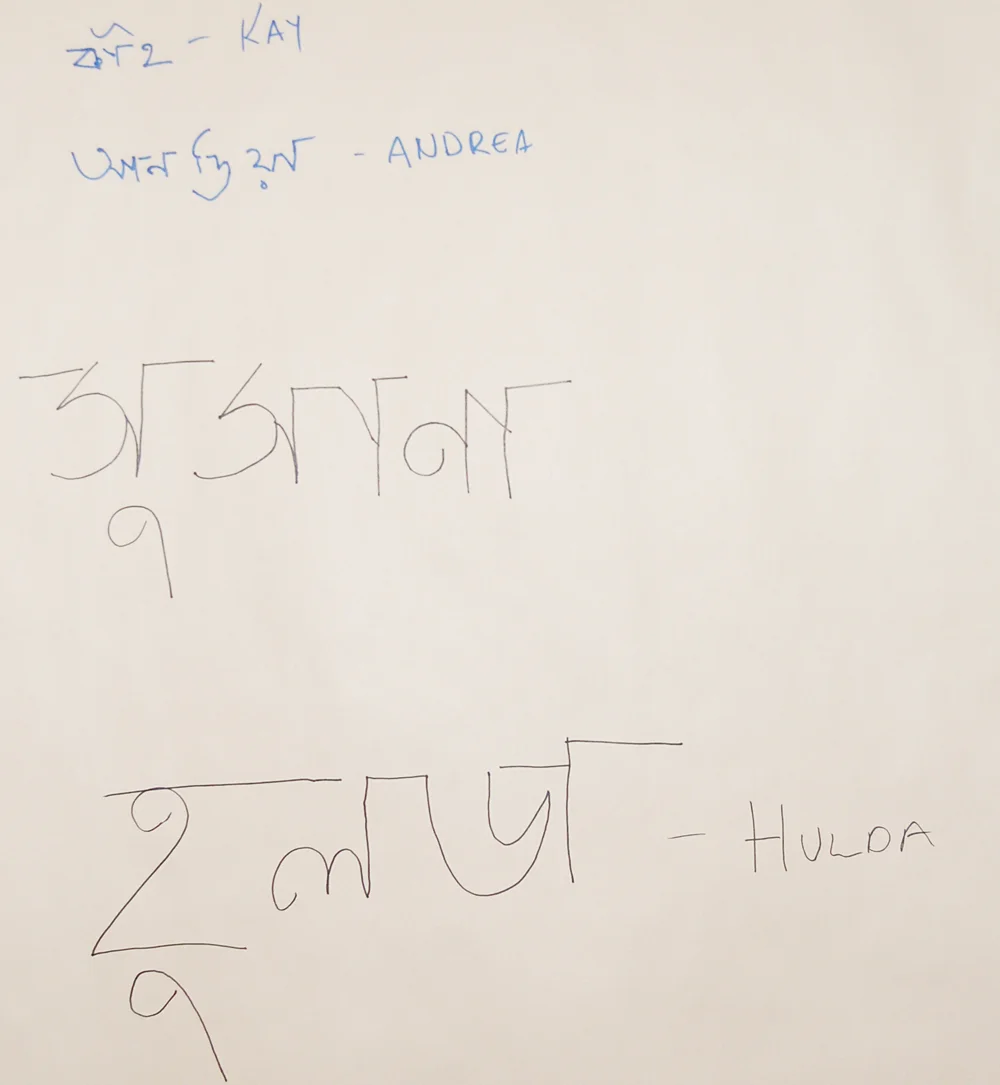 কাঁই - KAY
আনদ্রিয়া - ANDREA
অুজানা
হুলডা - HULDA